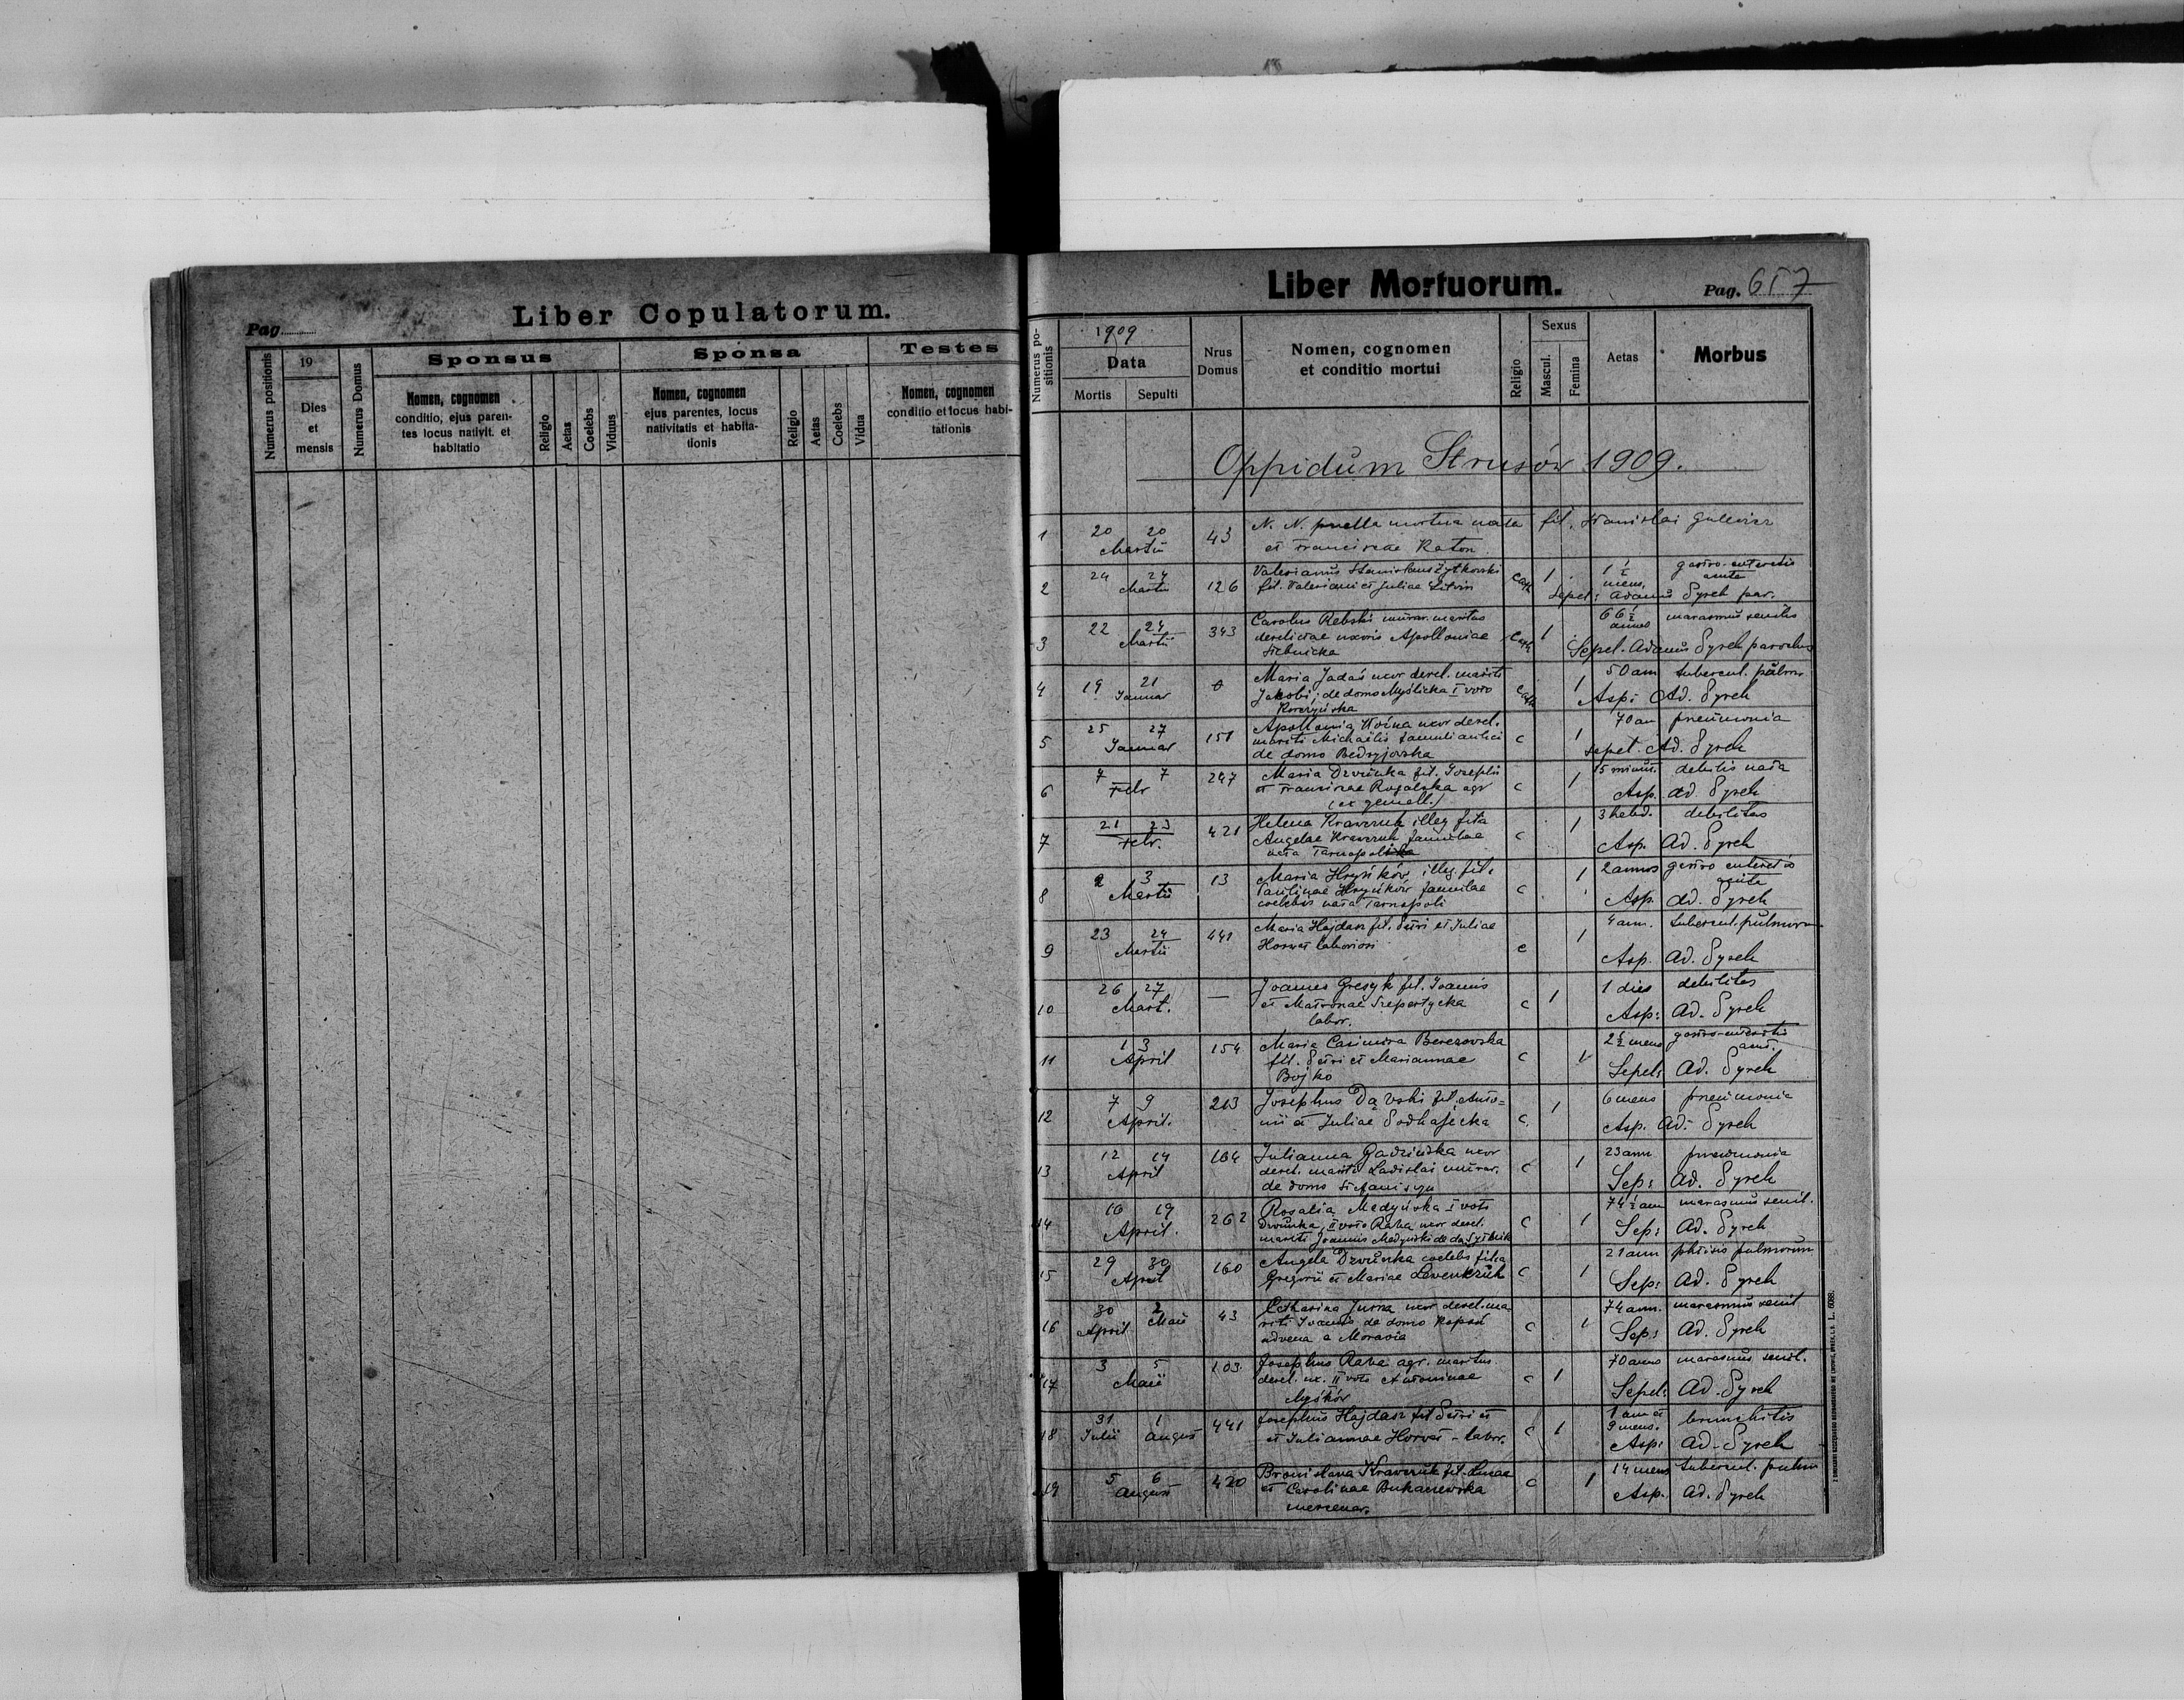 Liber Copulatorum.
Pag.
Numerus positionis
19
Dies
et
mensis
Numerus Domus
Sponsus
Nomen, cognomen
conditio, ejus paren-
tes locus nativit. et
habitatio
Religio
Aetas
Coelebs
Viduus
Sponsa
Nomen, cognomen
ejus parentes, locus
nativitatis et habita-
tionis
Religio
Aetas
Coelebs
Vidua
Testes
Nomen, cognomen
conditio et locus habi-
tationis
Liber Mortuorum.
Pag. 657
Numerus po-
sitionis
1909
Data
Mortis
Sepulti
Nrus
Domus
Nomen, cognomen
et conditio mortui
Religio
Sexus
Mascul.
Femina
Aetas
Morbus
Oppidum Strusów 1909.
1 20 20 43 N. N. puella mortua nata fil. Stanislai
Martii et Franciscae Raton
2 24 24 126 Valerianus Stanislaus Żytkowski Cath 1 1 1/2 gastro-enteretis
Martii fil. Valeriani et Juliae Litvin mens, acuta
Sepel: Adamus Dyrek par.
3 22 24 343 Carolus Rebski murar. maritus Cath 1 66 1/2 marasmus senilis
Martii derelictae uxoris Apolloniae annos
Sepel. Adamus Dyrek parochus
4 19 21 0 Maria Jadaś uxor derel. mariti Cath 1 50 ann tubercul. pulm
Januar Jakobi, de domo Myślicka I voto
Korczyńska Asp: Ad. Dyrek
5 25 27 151 Apollonia uxor derel. c 1 70 an pneumonia
Januar mariti Michaëlis famuli aulici
de domo Sepel. Ad. Dyrek
6 7 7 247 Maria Dzwinka fil. Josephi c 1 15 minut. debilis nata
Febr et Franciscae Rogalska agr
(ex gemell.) Asp. Ad. Dyrek
7 21 23 421 Helena Krawczuk illeg. filia c 1 3 hebd. debilitas
Febr. Angelae Krawczuk famulae
nata Tarnopoli Asp. Ad. Dyrek
8 2 3 13 Maria Hryńków, illeg. fil. c 1 2 annos gastro enteretis
Martii Paulinae Hryńków famulae acuta
coelebis nata Tarnopoli Asp. Ad. Dyrek
9 23 24 441 Maria Hajdasz fil. Petri et Juliae c 1 4 ann. tubercul. pulmorum
Martii Horwat laboriosi Asp. Ad. Dyrek
10 26 27 — Joannes Gresyk fil. Joannis c 1 1 dies debilitas
Mart. et Matronae
labor. Asp: Ad. Dyrek
11 1 3 154 Maria Casimira Berezowska c 1 2 1/2 mens gastro-enteritis
April fil. Petri et Mariannae acut.
Bojko Sepel: Ad. Dyrek
12 7 9 213 Josephus fil. Anto= c. 1 6 mens pneumonia
April. nii et Juliae Podhajecka Asp. Ad. Dyrek
13 12 14 164 Julianna uxor c 1 23 ann pneumonia
April derel. mariti Ladislai murar.
de domo Stefaniszyn Sep: Ad. Dyrek
14 16 19 262 Rosalia Medyńska I voto c 1 74 1/2 ann marasmus senil.
April. Dzwinka, II voto Raba uxor derel.
mariti Joannis Medyński de do. Sep: Ad. Dyrek
15 29 30 160 Angela Dzwinka coelebs filia c 1 21 ann phtisis pulmorum
April Gregorii et Mariae Lewenkruk Sep: Ad. Dyrek
16 30 2 43 Catharina uxor derel. ma- c 1 74 ann. marasmus senil
April Maii riti de domo
advena a Moravia Sep: Ad. Dyrek
17 3 5 103. Josephus Raba agr. maritus c 1 70 anno marasmus senil.
Maii derel. ux. II voto Antoninae
Myśków Sepel: Ad. Dyrek
18 31 1 441 Josephus Hajdasz fil Petri et c 1 1 ann et bronchitis
Julii August et Juliannae Horvat - labor. 9 mens.
Asp: Ad. Dyrek
19 5 6 420 Bronislava Krawczuk fil. Lucae c 1 14 mens tubercul. pulm
August et Carolinae
mercenar. Asp. Ad. Dyrek